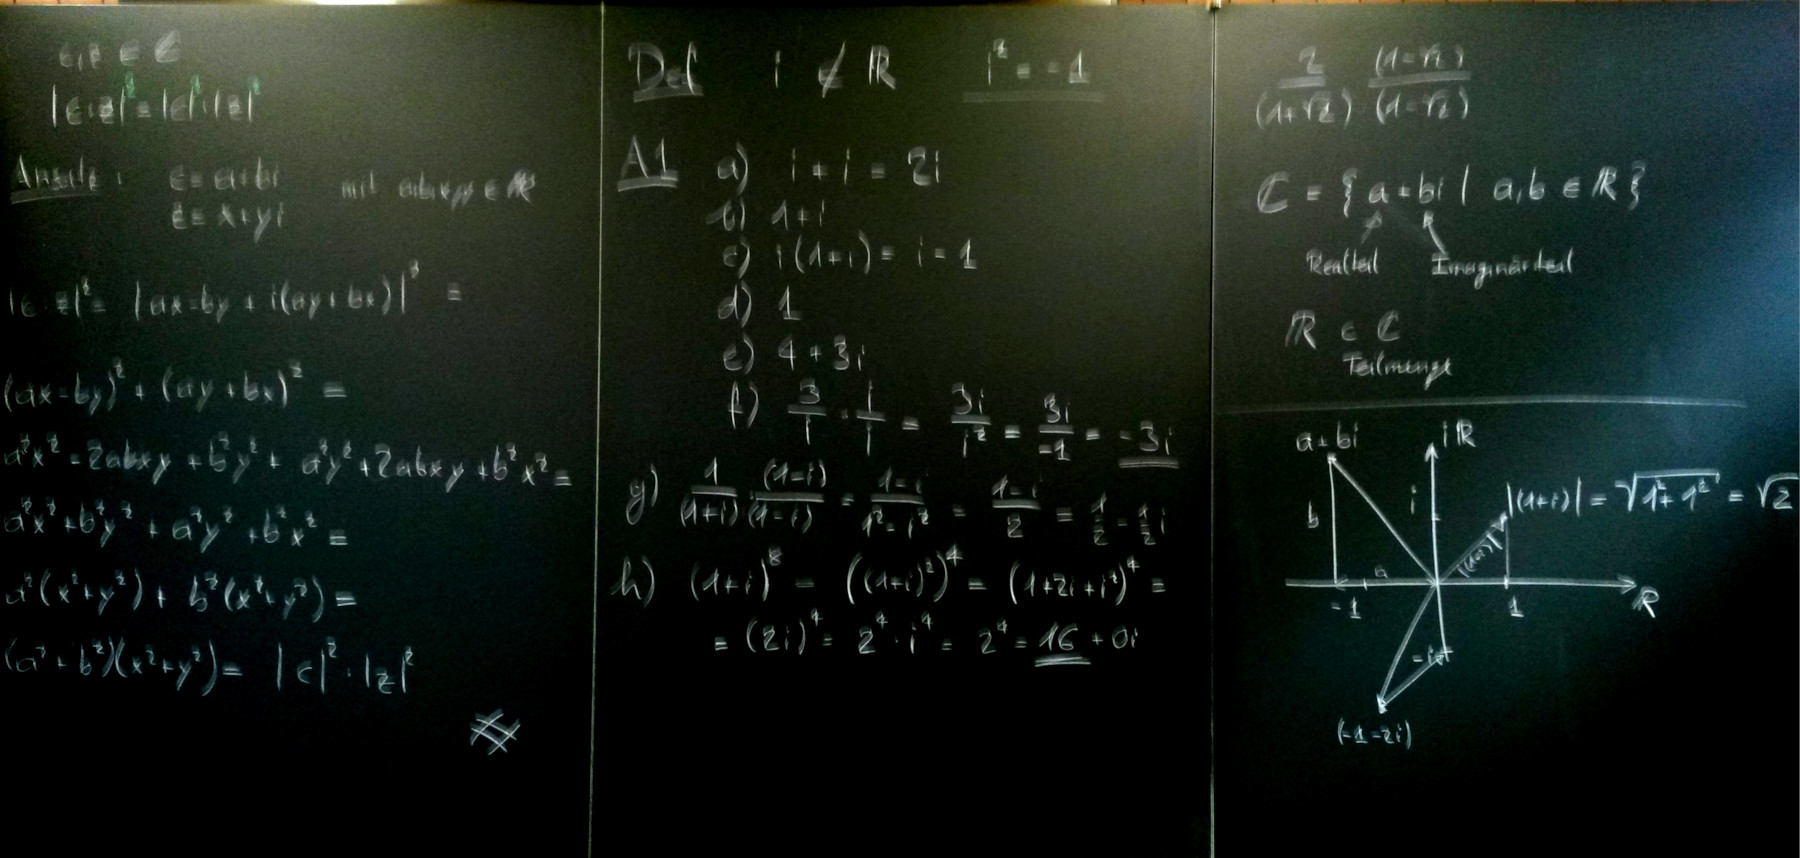 c, z ∈ ℂ
|c·z|² = |c|²·|z|²
Ansatz: c = a+bi mit a,b,x,y ∈ ℝ
z = x+yi
|c·z|² = |ax-by + i(ay+bx)|² =
(ax-by)² + (ay+bx)² =
a²x² - 2abxy + b²y² + a²y² + 2abxy + b²x² =
a²x² + b²y² + a²y² + b²x² =
a²(x²+y²) + b²(x²+y²) =
(a²+b²)(x²+y²) = |c|²·|z|²
Def i ∉ ℝ i² = -1
A1 a) i + i = 2i
b) 1+i
c) i(1+i) = i - 1
d) 1
e) 4 + 3i
f) 3/i · i/i = 3i/i² = 3i/-1 = -3i
g) 1/(1+i) · (1-i)/(1-i) = 1-i/1²-i² = 1-i/2 = 1/2 - 1/2 i
h) (1+i)⁸ = ((1+i)²)⁴ = (1+2i+i²)⁴ =
= (2i)⁴ = 2⁴·i⁴ = 2⁴ = 16 + 0i
2/(1+√2) (1-√2)/(1-√2)
ℂ = { a + bi | a,b ∈ ℝ }
Realteil Imaginärteil
ℝ ⊂ ℂ
Teilmenge
a+bi iℝ
b i |(1+i)| = √1²+1² = √2
a |(1+i)|
-1 1 ℝ
(-1-2i)